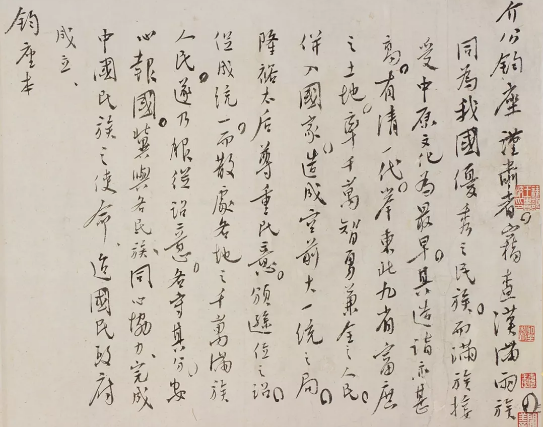 介公鈞座謹肅者竊查漢滿兩族
同為我國優秀之民族而滿族接
受中原文化為最早其造詣亦甚
高有清一代舉東北九省富庶
之土地率千萬智勇兼全之人民
併入國家造成空前大一統之局
隆裕太后尊重民意頒遜位之詔
促成統一而散處各地之千萬滿族
人民遂乃服從詔意各守其分安
心報國冀與各民族同心協力完成
中國民族之使命、迨國民政府
成立、
鈞座本